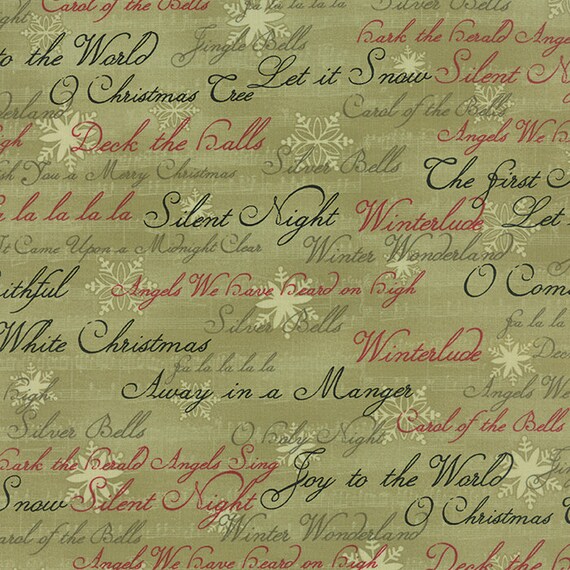 Carol of the Bells
fa la la la la
Night
Jingle Bells
Hark the Herald Angels
to the World
Let it Snow
Silent Night
O Christmas Tree
Wonderland
Carol of the Bells
High
Deck the Halls
Angels We H
Silver Bells
sh You a Merry Christmas
The First
la la la la la
Silent Night
Winterlude
Let
It Came Upon a Midnight Clear
Winter Wonderland
aithful
Angels We Have Heard on High
O Com
Silver Bells
fa la la
White Christmas
Winterlude
Deck
fa la la la la
Away in a Manger
Angels We
High
Silver Bells
O Holy Night
Carol of the Bells
Hark the Herald Angels Sing
Joy to the World
Jing
Snow
Silent Night
O Christmas T
Carol of the Bells
Winter Wonderland
Angels We Have Heard on High
Deck the Halls